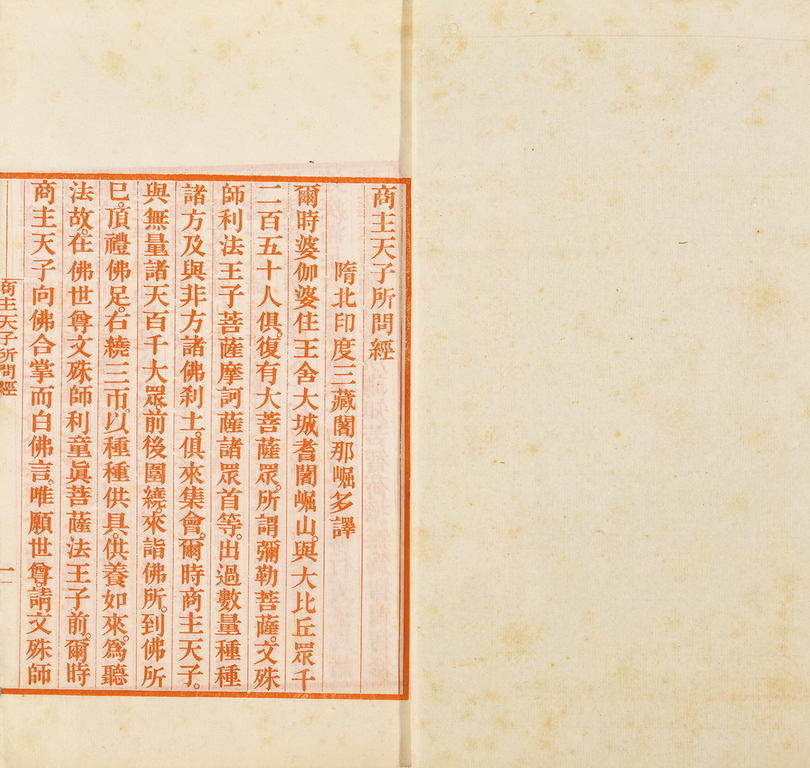 商主天子所問經
隋北印度三藏闍那崛多譯
爾時婆伽婆住王舍大城耆闍崛山。與大比丘眾千
二百五十人俱。復有大菩薩眾。所謂彌勒菩薩。文殊
師利法王子菩薩摩訶薩諸眾首等。出過數量種種
諸方及與非方諸佛刹土。俱來集會。爾時商主天子。
與無量諸天百千大眾。前後圍繞。來詣佛所。到佛所
已。頂禮佛足。右繞三帀。以種種供具。供養如來。爲聽
法故。在佛世尊文殊師利童眞菩薩法王子前。爾時
商主天子向佛合掌而白佛言。唯願世尊。請文殊師
商主天子所問經
一